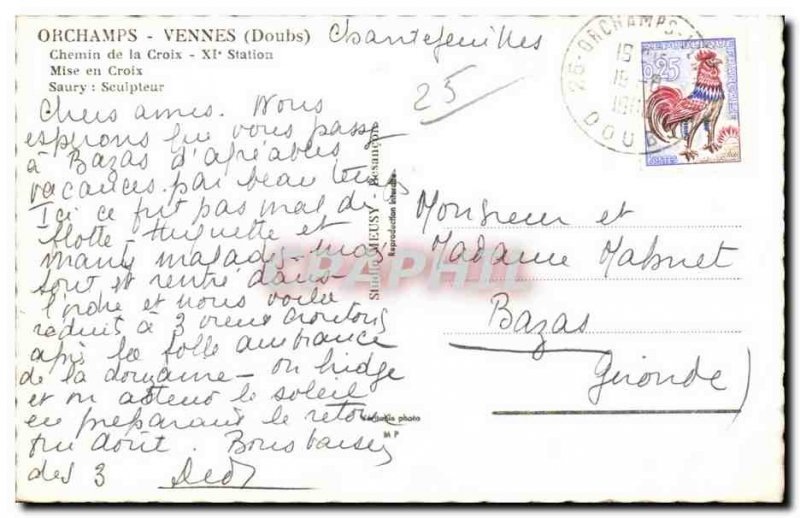 ORCHAMPS - VENNES (Doubs)
Chemin de la Croix - XIe Station
Mise en Croix
Saury : Sculpteur
Chantefeuilles
25
25-ORCHAMPS-
DOUBS
0,25
Chers amis. Nous
espérons que vous passez
à Bazas d'agréables
vacances par beau temps
Ici ce fut pas mal de
flotte Huguette et
mais tout
sont et rentré dans
l'ordre et nous voilà
réduit à 3 vieux croutons
après la folle ambiance
de la douzaine - on bridge
et on attend le soleil
en préparant le retour
du dont. Bons baisers
des 3 Dédé
Studio MEUSY - Besançon
Reproduction interdite
Véritable photo
M P
Monsieur et
Madame
Bazas
Gironde)
CPAPHIL